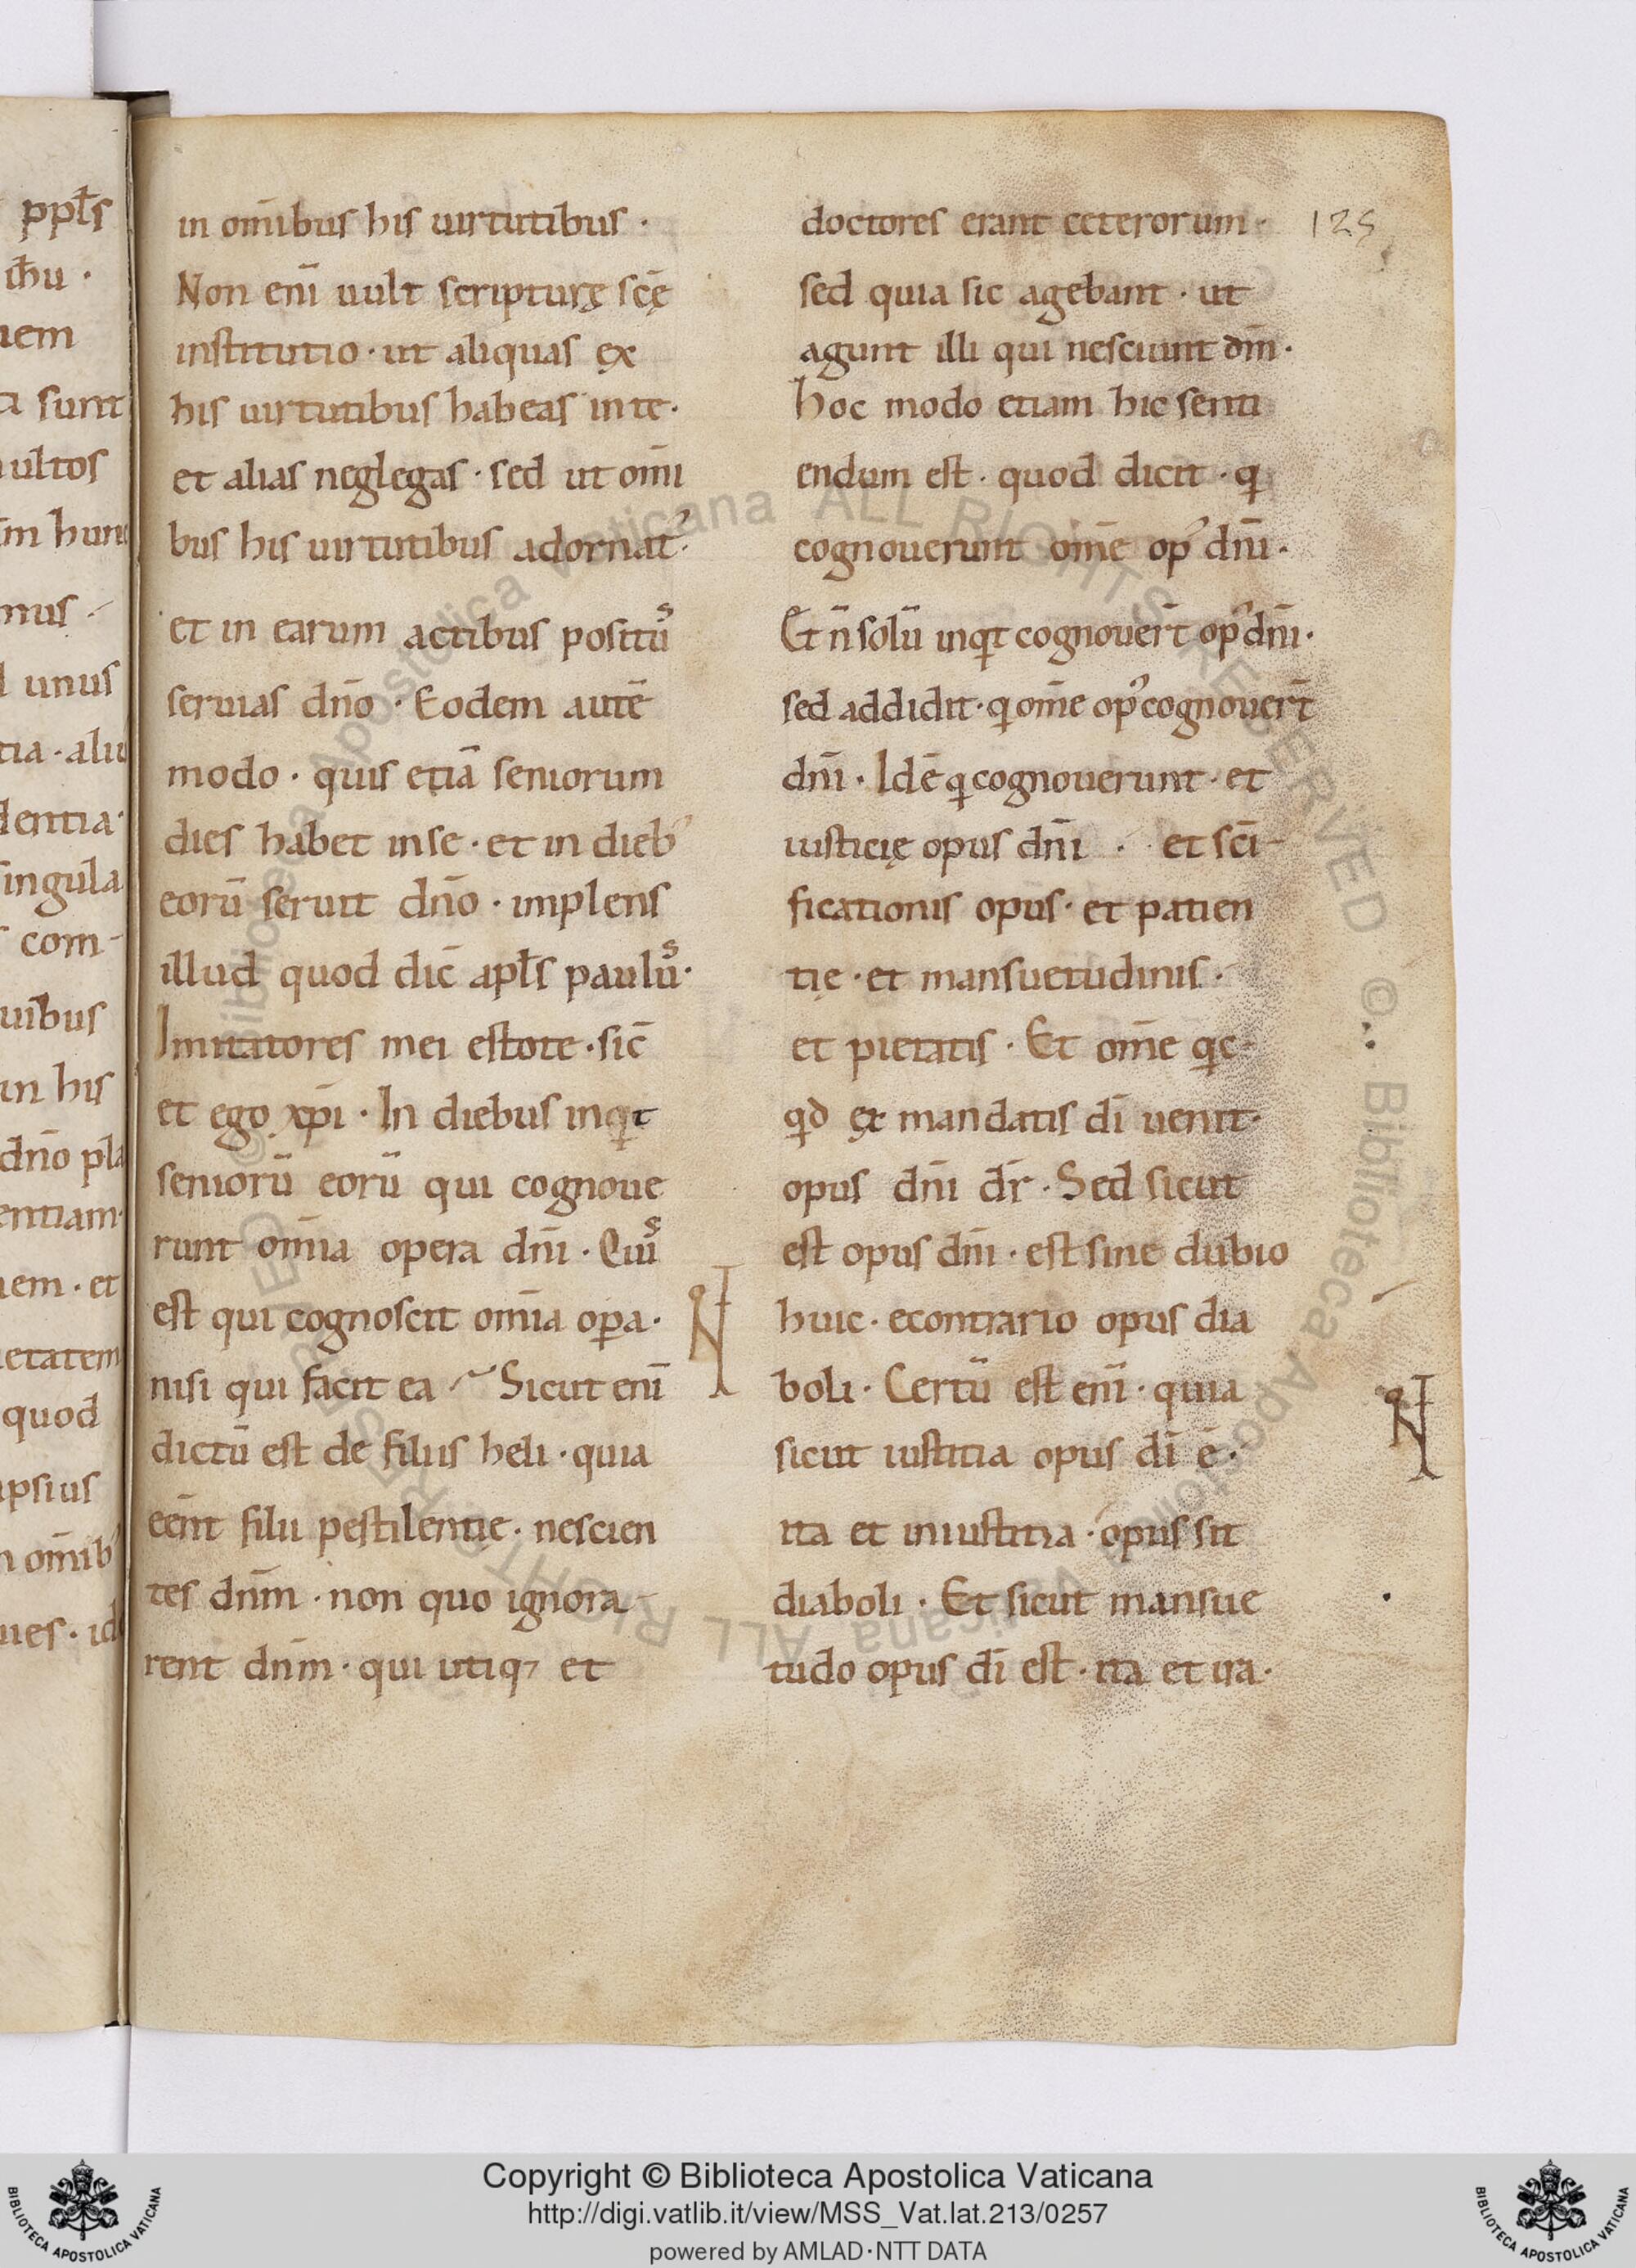 ppts
ihu ·
uem
a sunt
ultos
im hunc
mus ·
d unus
tia · aliu
dentia ·
singula
s com-
uibus
in his
dño pla
entiam ·
nem · et
ietatem
quod
ipsius
n om̄ib᾿
ues · id
in om̄ibus his uirtutibus ·
Non eni̅ uult scripturę sce̅
institutio · ut aliquas ex
his uirtutibus habeas in te ·
et alias neglegas · sed ut om̄i
bus his uirtutibus adornat᾿ ·
et in earum actibus positus
seruias dño · Eodem aute̅
modo · quis etia̅ seniorum
dies habet in se · et in dieb᾿
eoru̅ seruit dño · implens
illud quod dic̅ apls paulus ·
Imitatores mei estote · sic̅
et ego xpi̅ · In diebus inqt
senioru̅ eoru̅ qui cognoue
runt om̄ia opera dñi · Quis
est qui cognoscit om̄ia opa ·
nisi qui facit ea · Sicut eni̅
dictu̅ est de filiis heli · quia
eent̅ filii pestilentie · nescien
tes dñm · non quo ignora-
rent dñm · qui utiq; et
doctores erant ceterorum ·
sed quia sic agebant · ut
agunt illi qui nesciunt dm̅ ·
hoc modo etiam hic senti
endum est · quod dicit · q
cognouerunt om̄e op᾿ dñi ·
Et n̅ solu̅ inqt cognouer̅t op᾿ dñi ·
sed addidit · q om̄e op᾿ cognouer̅t
dñi · Ide̅ q cognouerunt · et
iusticię opus dñi · et sci̅-
ficationis opus · et patien
tię · et mansuetudinis ·
et pietatis · Et om̄e qc-
qd ex mandatis di̅ uenit ·
opus dñi dr̅ · Sed sicut
est opus dñi · est sine dubio
huic · econtrario opus dia
boli · Certu̅ est eni̅ · quia
sicut iustitia opus di̅ e̅ ·
ita et iniustitia · opus sit
diaboli · Et sicut mansue
tudo opus di̅ est · ita et ira ·
125
Copyright © Biblioteca Apostolica Vaticana
http://digi.vatlib.it/view/MSS_Vat.lat.213/0257
powered by AMLAD·NTT DATA
BIBLIOTECA APOSTOLICA VATICANA
BIBLIOTECA APOSTOLICA VATICANA